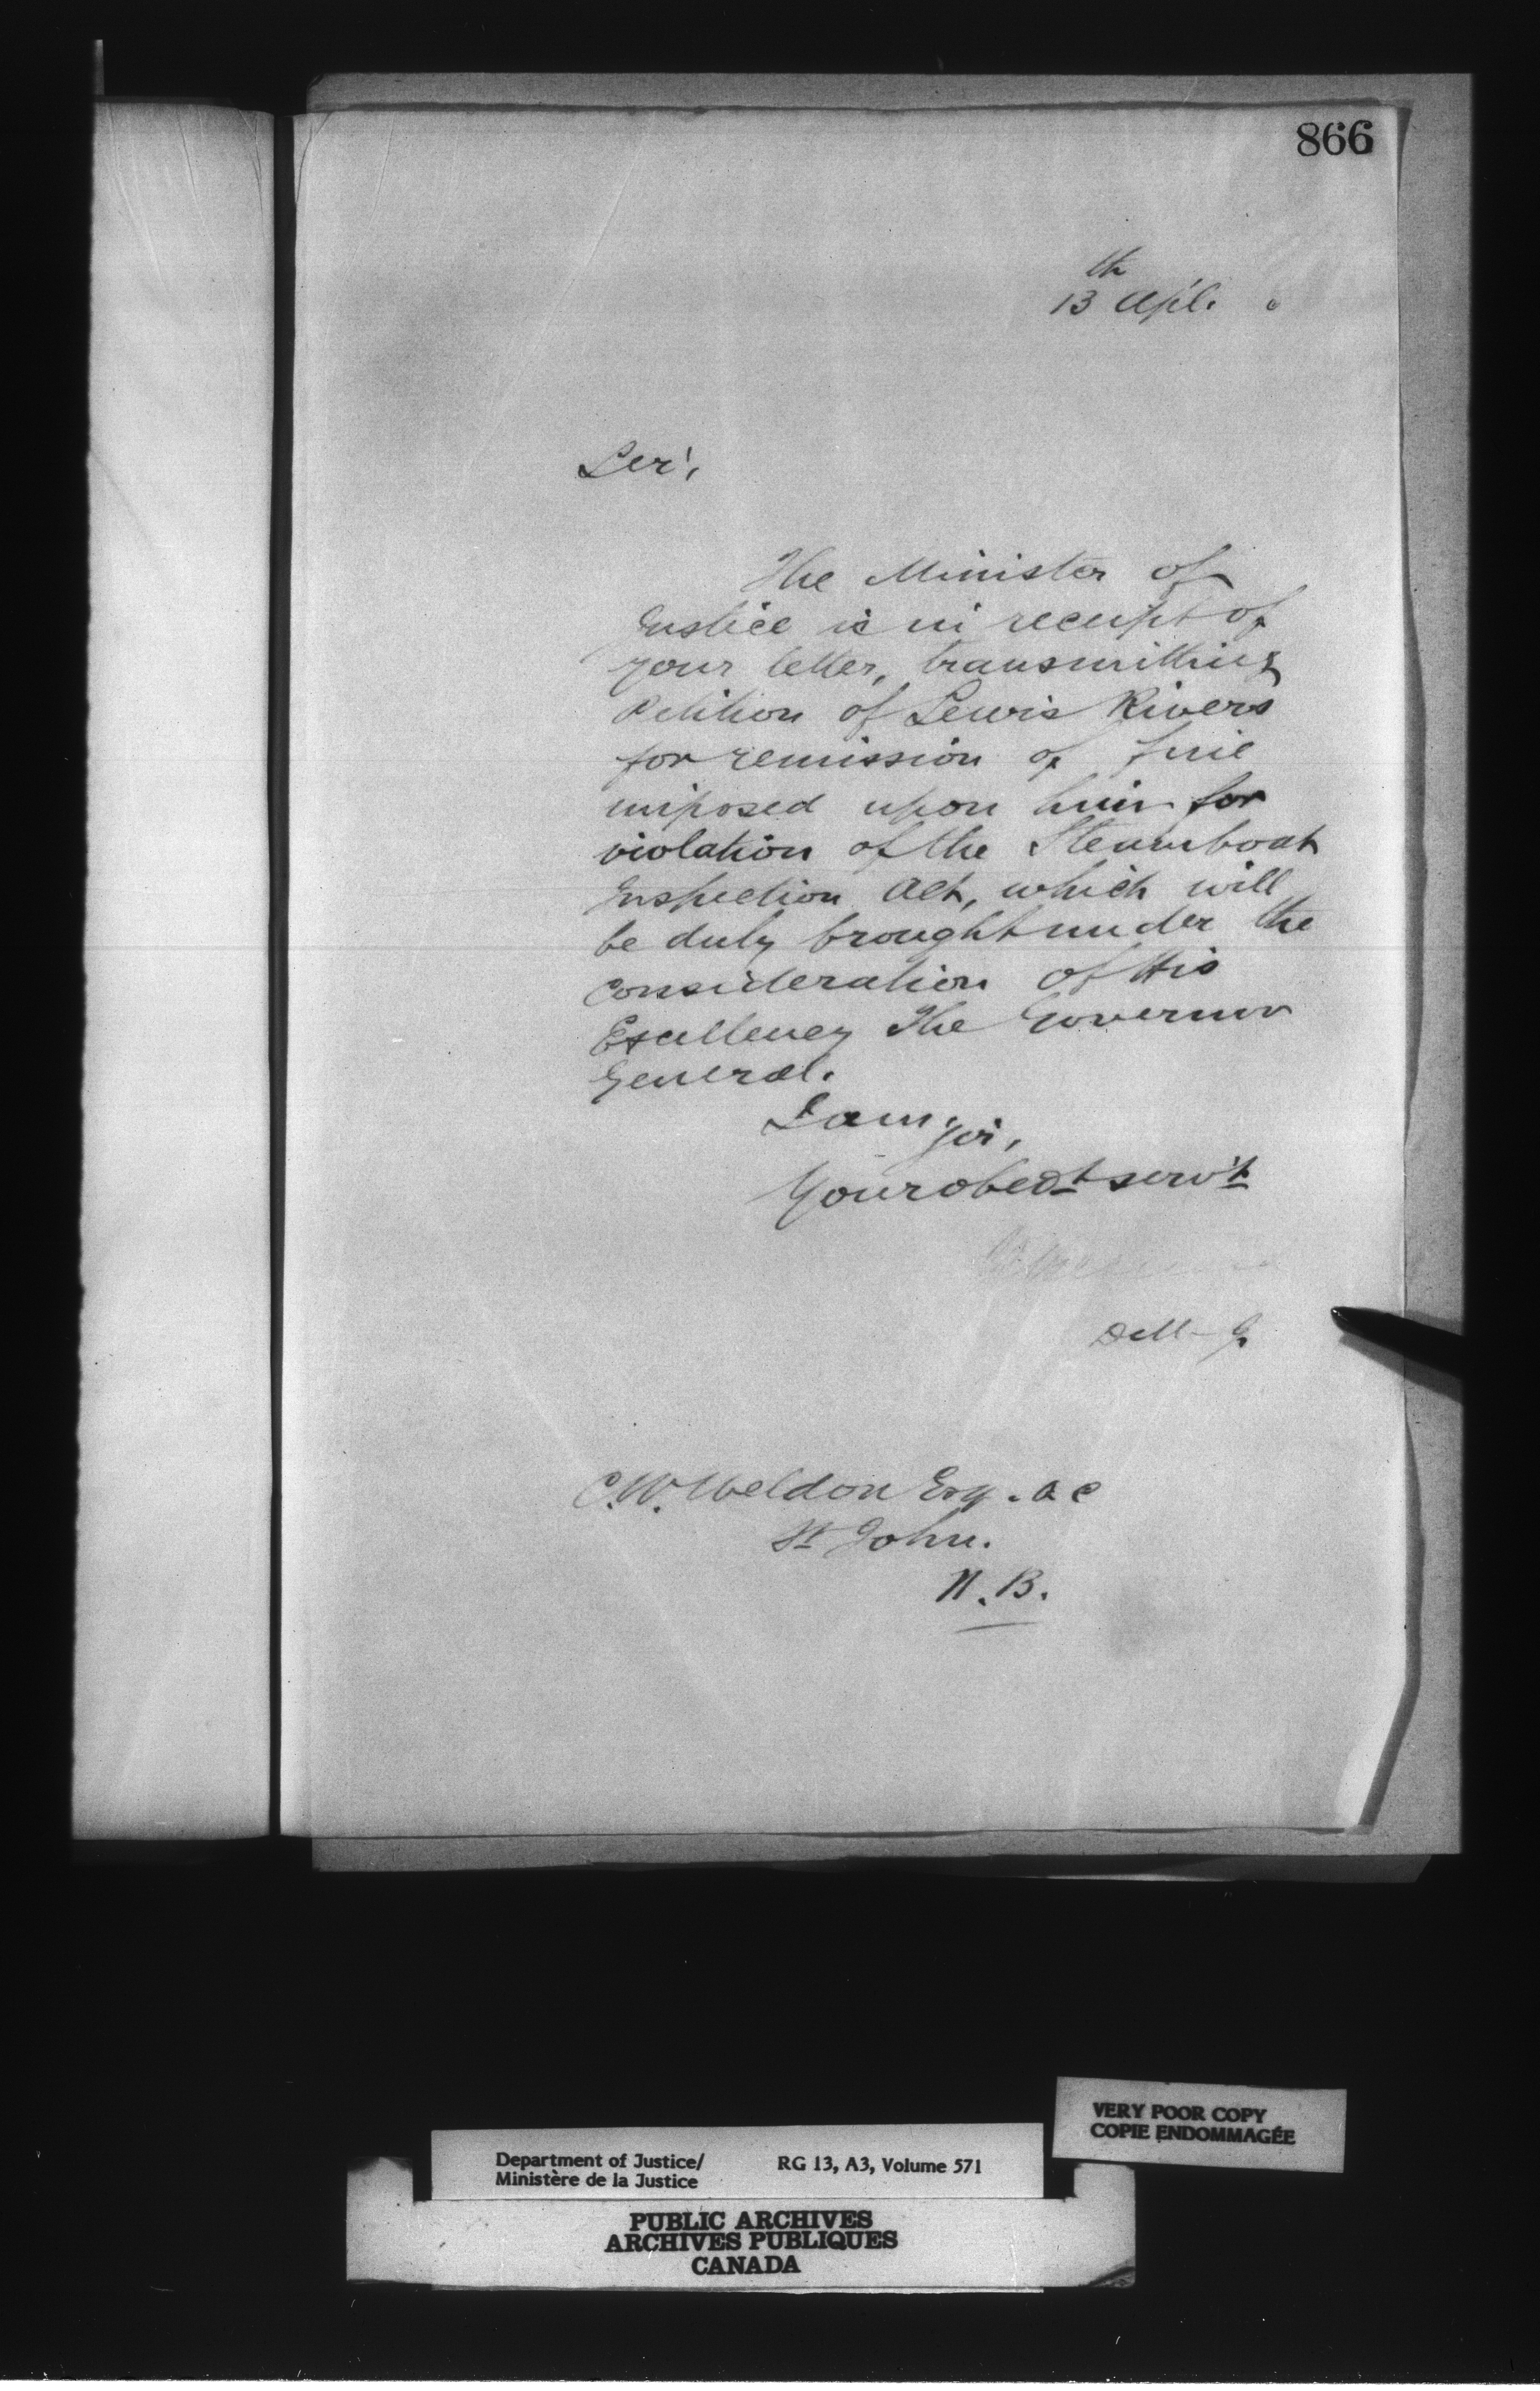 866
13th Apl. 6
Sir,
The Minister of
Justice is in receipt of
your letter, transmitting
Petition of Lewis Rivers
for remission of fine
imposed upon him for
violation of the Steamboat
Inspection Act, which will
be duly brought under the
consideration of His
Excellency The Governor
General.
I am, Sir,
Your obedt servt
D M-J
C.W. Weldon Esq. Q C
St John.
N.B.
VERY POOR COPY
COPIE ENDOMMAGÉE
Department of Justice/ RG 13, A3, Volume 571
Ministère de la Justice
PUBLIC ARCHIVES
ARCHIVES PUBLIQUES
CANADA